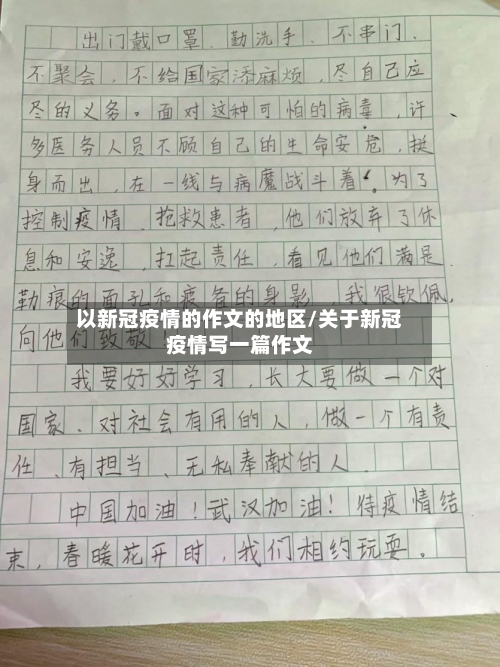 出门戴口罩、勤洗手、不串门、
不聚会，不给国家添麻烦，尽自己应
尽的义务。面对这种可怕的病毒，许
多医务人员不顾自己的生命安危，挺
身而出，在一线与病魔战斗着。为了
控制疫情，抢救患者，他们放弃了休
息和安逸，扛起责任，看见他们满是
勒痕的面孔和疲惫的身影，我很钦佩，
向他们致敬！
以新冠疫情的作文的地区/关于新冠
疫情写一篇作文
我要好好学习，长大要做一个对
国家、对社会有用的人，做一个有责
任、有担当、无私奉献的人。
中国加油！武汉加油！待疫情结
束，春暖花开时，我们相约玩耍。